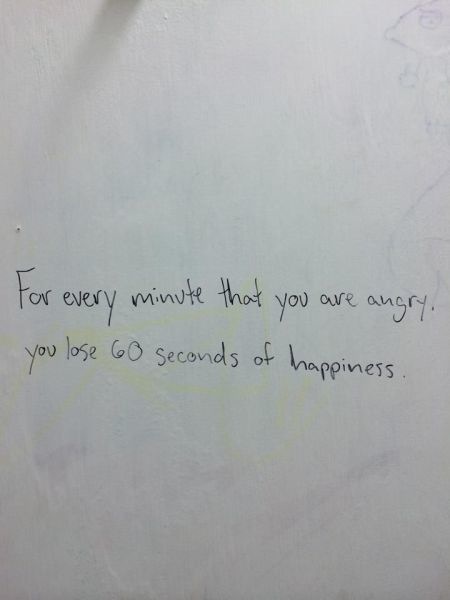 For every minute that you are angry.
you lose 60 seconds of happiness.